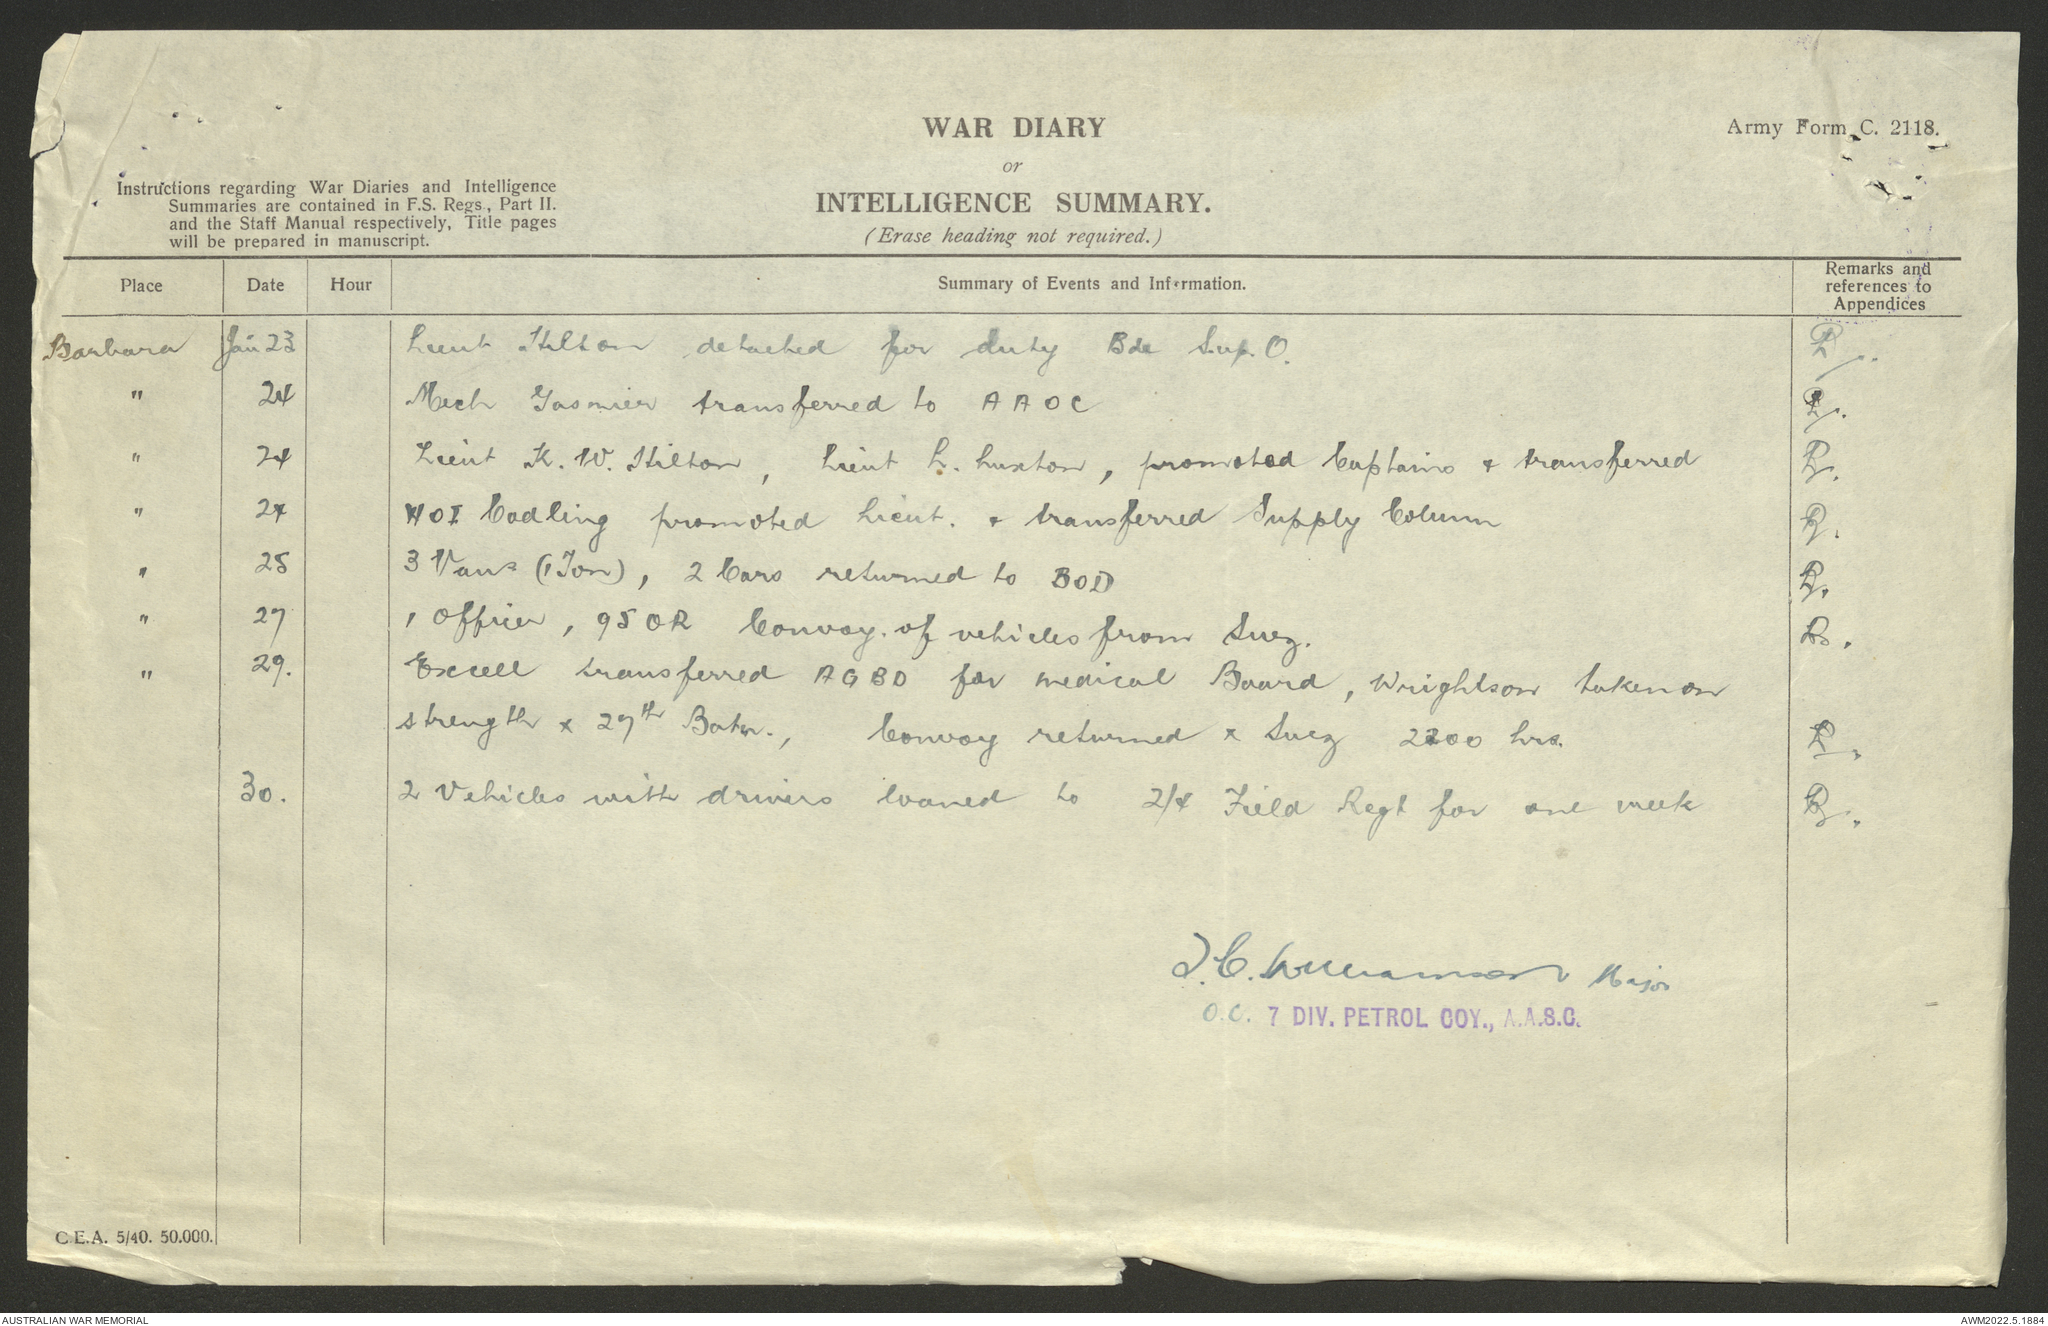 WAR DIARY
or
INTELLIGENCE SUMMARY.
(Erase heading not required.)
Army Form C. 2118.
Instructions regarding War Diaries and Intelligence
Summaries are contained in F.S. Regs., Part II.
and the Staff Manual respectively, Title pages
will be prepared in manuscript.
Place Date Hour Summary of Events and Information. Remarks and references to Appendices
Barbara Jan 23 Lieut Hilton detached for duty Bde Sup. O.
" 24 Mech Gasmier transferred to AAOC
" 24 Lieut K. W. Hilton, Lieut L. Luxton, promoted Captains & transferred
" 24 WO I Codling promoted Lieut. & transferred Supply Column
" 25 3 Vans (1 Ton), 2 Cars returned to BOD
" 27 1 Officer, 95 OR Convoy of vehicles from Suez.
" 29. Excell transferred AGBD for medical Board, Wrightson taken on
strength x 27th Batn., Convoy returned x Suez 2200 hrs.
30. 2 Vehicles with drivers loaned to 2/4 Field Regt for one week
Williamson Major
O.C. 7 DIV. PETROL COY., A.A.S.C.
C.E.A. 5/40. 50.000.
AUSTRALIAN WAR MEMORIAL
AWM2022.5.1884